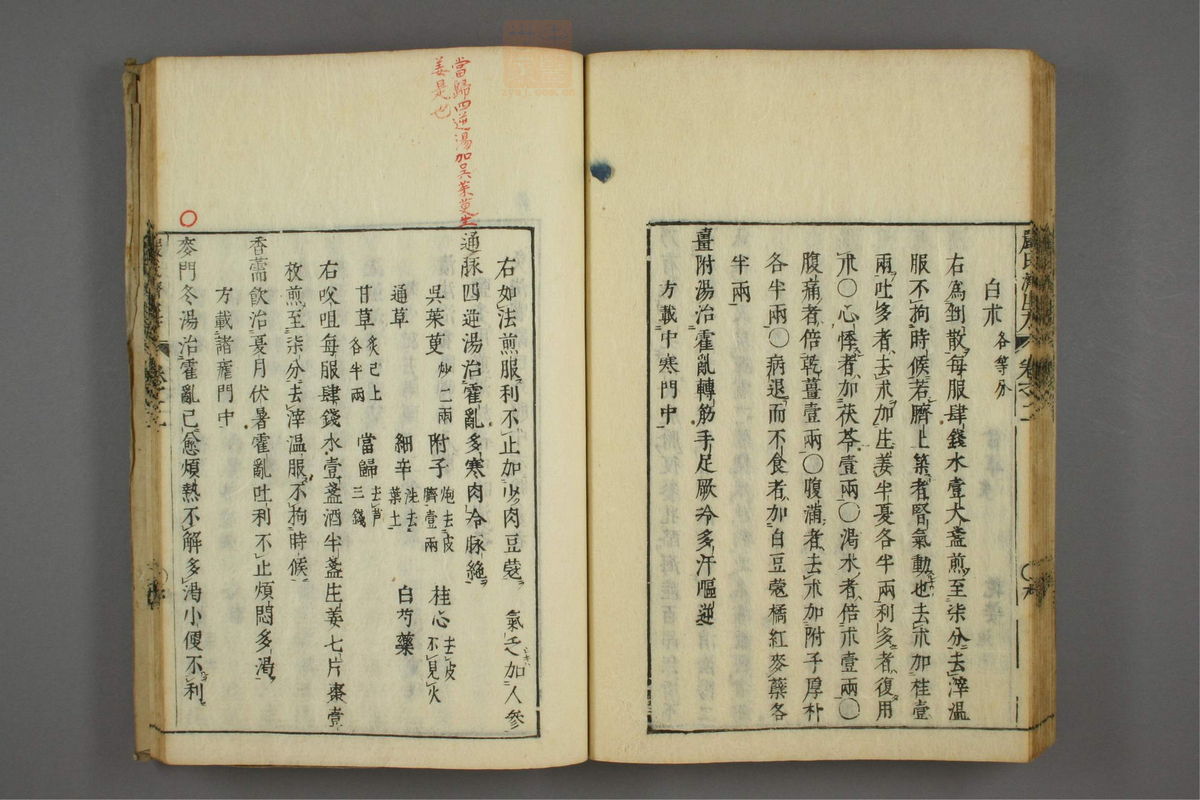 白朮各等分
右爲剉散每服肆錢水壹大盞煎至柒分去滓溫
服不拘時候若臍上築者腎氣動也去朮加桂壹
兩吐多者去朮加生姜半夏各半兩利多者復用
朮〇心悸者加茯苓壹兩〇渴水者倍朮壹兩〇
腹痛者倍乾薑壹兩〇腹滿者去朮加附子厚朴
各半兩〇病退而不食者加白豆蔻橘紅麥蘗各
半兩
薑附湯治霍亂轉筋手足厥冷多汗嘔逆
方載中寒門中
右如法煎服利不止加少肉豆蔻 氣乏加人參
當歸四逆湯加吳茱萸生
姜是也
通脉四逆湯治霍亂多寒肉冷脉絶
吳茱萸炒二兩 附子炮去皮臍壹兩 桂心去皮不見火
通草 細辛洗去葉土 白芍藥
甘草炙已上各半兩 當歸去芦三錢
右㕮咀每服肆錢水壹盞酒半盞生姜七片棗壹
枚煎至柒分去滓溫服不拘時候
香薷飲治夏月伏暑霍亂吐利不止煩悶多渴
方載諸
門中
〇
麥門冬湯治霍亂已愈煩熱不解多渴小便不利